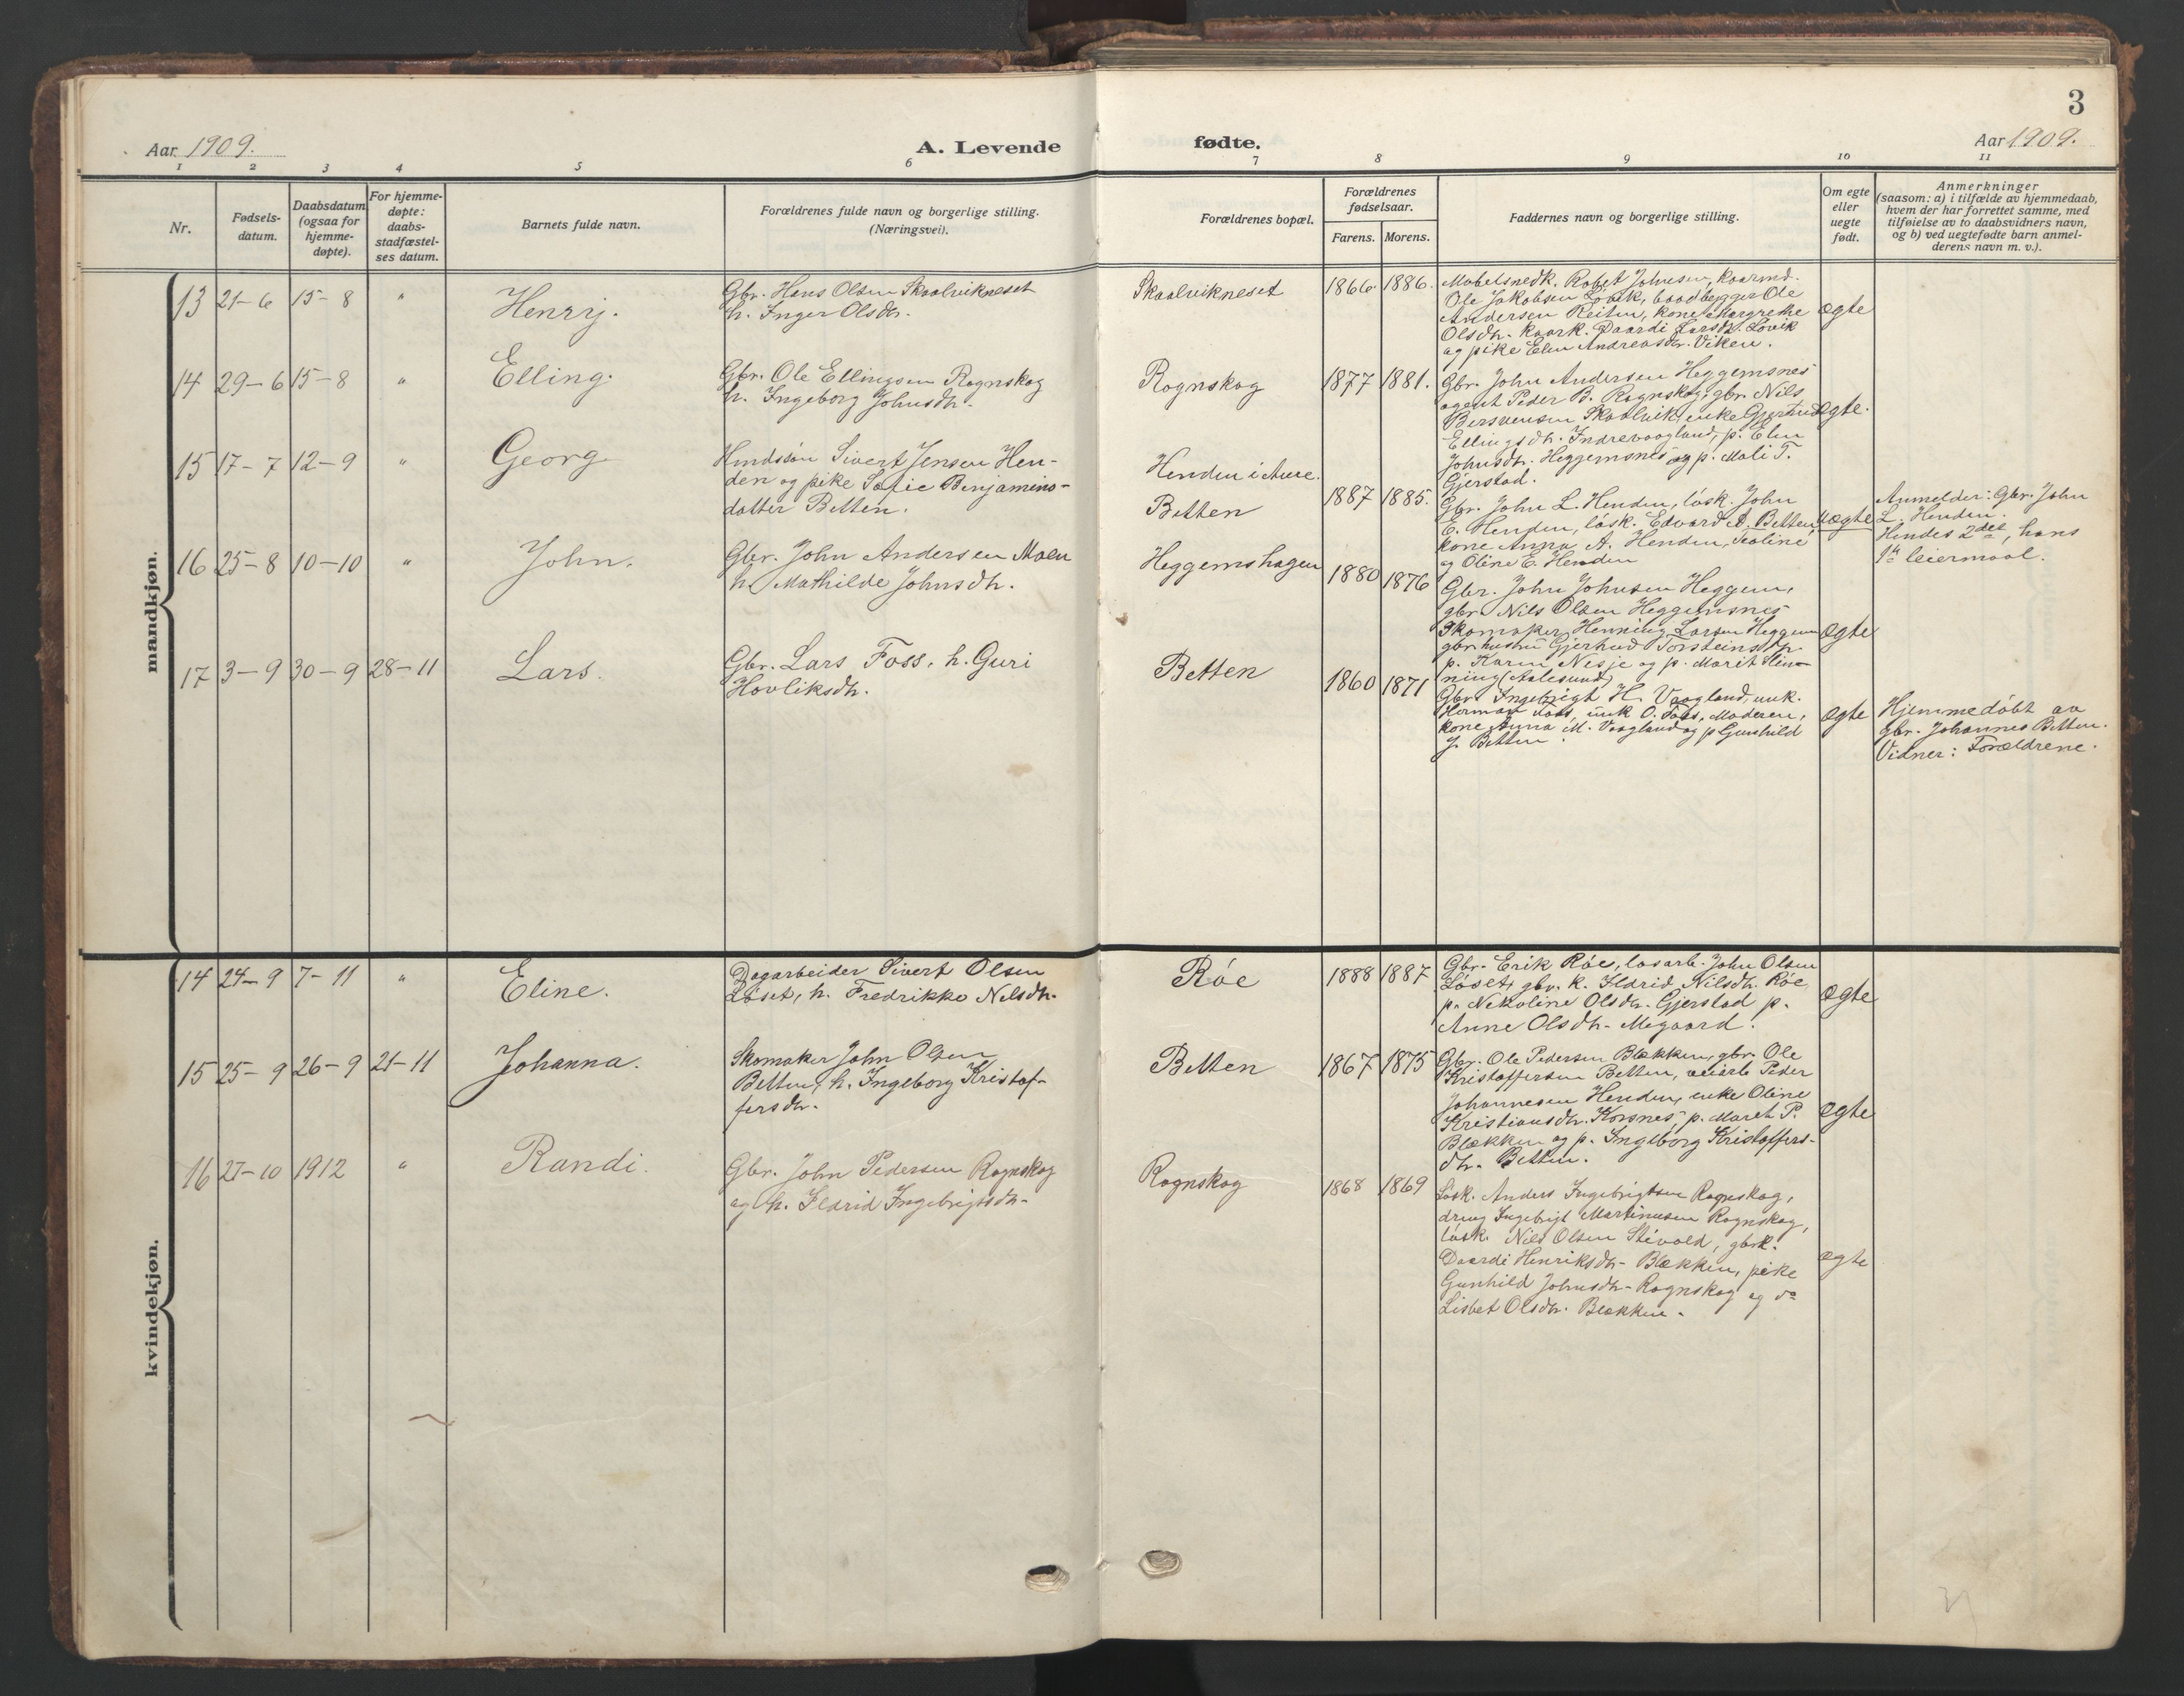 3
Aar 1909.
A. Levende
fødte.
Aar 1909.
1 2 3 4 5 6 7 8 9 10 11
Nr.
Fødsels-
datum.
Daabsdatum
(ogsaa for
hjemme-
døpte).
For hjemme-
døpte:
daabs-
stadfæstel-
ses datum.
Barnets fulde navn.
Forældrenes fulde navn og borgerlige stilling.
(Næringsvei).
Forældrenes bopæl.
Forældrenes
fødselsaar.
Farens. Morens.
Faddernes navn og borgerlige stilling.
Om egte
eller
uegte
født.
Anmerkninger
(saasom: a) i tilfælde av hjemmedaab,
hvem der har forrettet samme, med
tilføielse av to daabsvidners navn,
og b) ved uegtefødte barn anmel-
derens navn m. v.).
mandkjøn.
13 21-6 15-8 " Henrij.
Gbr. Hans Olsen Skaalvikneset
h. Inger Olsdtr.
Skaalvikneset 1866. 1886.
Møbelsnedk. Robet Johnsen, kaarmd.
Ole Jakobsen Løvik, baadbygger Ole
Andersen Reiten, kone Margrethe
Olsdtr. kaark. Daardi Larsdtr. Løvik
og pike Elen Andreasdtr. Viken.
Ægte
14 29-6 15-8 " Elling.
Gbr. Ole Ellingsen Rognskog
h. Ingeborg Johnsdtr.
Rognskog 1877 1881.
Gbr. John Andersen Heggemsnes
agent Peder B. Rognskog, gbr. Nils
Bersvensen Skaalvik, enke Gjertrud
Ellingsdtr. Indrevaagland, p. Elen
Johnsdtr. Heggemsnes og p. Mali T.
Gjerstad.
Ægte.
15 17-7 12-9 " Georg
Sivert Jensen Hen-
den og pike Sofie Benjamins-
datter Betten.
Henden i Aure.
Betten 1887 1885.
Gbr. John L. Henden, løsk. John
E. Henden, løsk. Edvard A. Betten,
kone Anna A. Henden,
og Oline E. Henden
Uægte
Anmelder: Gbr. John
L. Henden.
Hendes 2det, hans
1te leiermaal.
16 25-8 10-10 " John.
Gbr. John Andersen Moen
h. Mathilde Johnsdtr.
Heggemshagen 1880 1876
Gbr. John Johnsen Heggem,
gbr. Nils Olsen Heggemsnes
Skomaker Henning Larsen Heggem
gbr. hustru Gjertrud Torsteinsdtr.
p. Karen Nesje og p. Marit Slin-
ning (Aalesund)
Ægte
17 3-9 30-9 28-11 Lars.
Gbr. Lars Foss, h. Guri
Hovliksdtr.
Betten 1860 1871
Gbr. Ingebrigt H. Vaagland, unk.
Herman Foss, unk O. Foss, Moderen,
kone Anna M. Vaagland og p Gunhild
J. Betten.
Ægte
Hjemmedøbt av
gbr. Johannes Betten.
Vidner: Forældrene.
kvindekjøn.
14 24-9 7-11 " Eline.
Dagarbeider Sivert Olsen
Løset, h. Fredrikke Nilsdtr.
Røe 1888 1887
Gbr. Erik Røe, løsarb. John Olsen
Løset, gbr. k. Ildrid Nilsdtr. Røe
p. Nekoline Olsdtr. Gjerstad p.
Anne Olsdtr. Megaard.
Ægte
15 25-9 26-9 21-11 Johanna.
Skomaker John Olsen
Betten, h. Ingeborg Kristof-
fersdtr.
Betten 1867 1875
Gbr. Ole Pedersen Blekken, gbr. Ole
Kristoffersen Betten, Peder
Johannesen Henden, enke Oline
Kristiansdtr. Korsnes, p. Maret P.
Blekken og p. Ingeborg Kristoffers-
dtr. Betten.
Ægte
16 27-10 1912 " Randi.
Gbr. John Pedersen Rognskog
og h. Ildrid Ingebrigtsdtr.
Rognskog 1868 1869
Løsk. Anders Ingebrigtsen Rognskog,
dreng Ingebrigt Martinusen Rognskog,
løsk. Nils Olsen Stivold, gbrk.
Daardi Henriksdtr. Blekken, pike
Gunhild Johnsdtr. Rognskog og do
Lisbet Olsdtr. Blekken.
Ægte